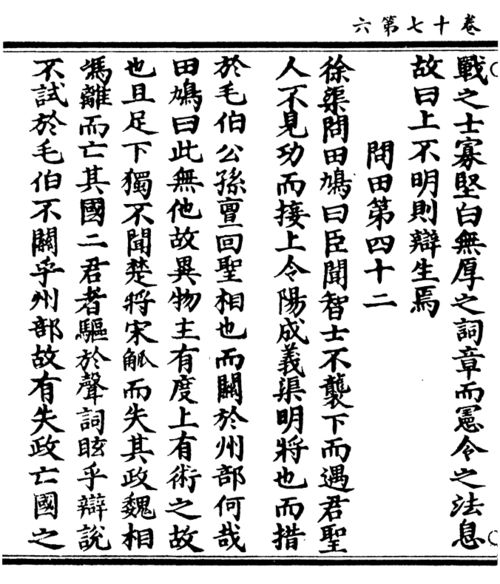 卷十七第六
戰之士寡堅白無厚之詞章而憲令之法息
故曰上不明則辯生焉
問田第四十二
徐渠問田鳩曰臣聞智士不襲下而遇君聖
人不見功而接上令陽成義渠明將也而措
於毛伯公孫亶回聖相也而關於州部何哉
田鳩曰此無他故異物主有度上有術之故
也且足下獨不聞楚將宋觚而失其政魏相
馮離而亡其國二君者驅於聲詞眩乎辯說
不試於毛伯不關乎州部故有失政亡國之